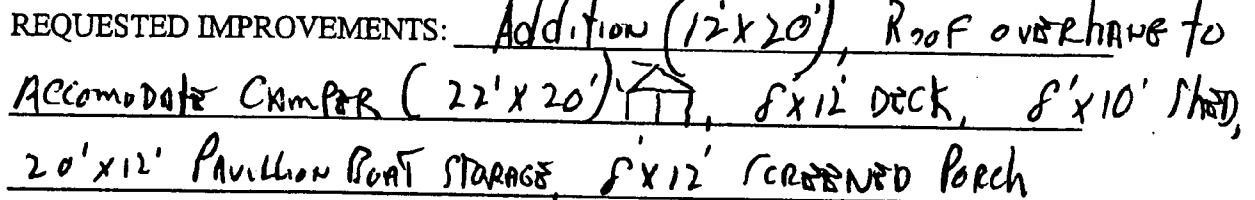 REQUESTED IMPROVEMENTS: Addition (12'x20'), Roof overhang to
Accomodate Camper (22'x20'), 8'x12' Deck, 8'x10' Shed,
20'x12' Pavillion Boat Storage, 8'x12' Screened Porch